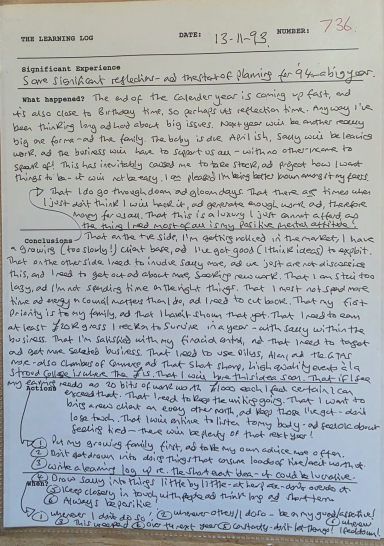 736.
THE LEARNING LOG DATE: 13-11-93 NUMBER:
Significant Experience
Some significant reflections - ad the start of planning for '94 - a big year.
What happened? The end of the Calender year is coming up fast, and
it's also close to Birthday time, so perhaps its reflection time. Anyway I've
been thinking long ad hard about big issues. Next year will be another really
big one for me - ad the family. The baby is due April ish, Sally will be leaving
work, ad the business will have to support us all - with no other income to
speak of! This has inevitably caused me to take stock, ad project how I want
things to be - it will not be easy, I am pleased I'm being better
That I do go through doom ad gloom days. That there are times when
I just don't think I will hack it, ad generate enough work ad, therefore
money for us all. That this is a luxury I just cannot afford, as
the thing I need most of all is my positive mental attitude!
Conclusions That on the + side, I'm getting noticed in the market, I have
a growing (too slowly!) client base, ad I've got good (I think ideas) to exploit.
That on the other side, I need to involve Sally more, ad we just are not discussing
this, and I need to get out ad about more, seeking new work. That I am still too
lazy, ad I'm not spending time on the right things. That I must not spend more
time ad energy on Council matters than I do, ad I need to cut back. That my first
Priority is to my family, ad that I haven't shown that yet. That I need to earn
at least gross I reckon to survive in a year - with Sally within the
business. That I'm satisfied with my financial control, ad that I need to target
ad get more selected business. That I need to use
more - also Chambers of Commerce ad that short sharp, high quality event to la
Stroud College is where the That I will have this idea soon. That if I see
my earning needs as 20 bits of work worth £1000 each I feel certain I can
exceed that. That I need to keep the writing going. That I want to
bring a new client on every other month, ad keep those I've got - don't
lose touch. That I will continue to listen to my body - ad feel ok about
feeling tired - there will be plenty of that next year!
Actions
① Put my growing family first, ad take my own advice more often.
② Don't get drawn into doing things that
③ Write a learning log up re. the
④ Draw Sally into things little by little - at her pace - don't overdo it.
⑤ Keep closely in touch with people ad think long ad short term
⑥ Always be positive.
When?
① whenever I don't do so! ② whenever others/I do so - be on my guard/assertive!
③ This weekend ④ over the next year ⑤ constantly - don't let things